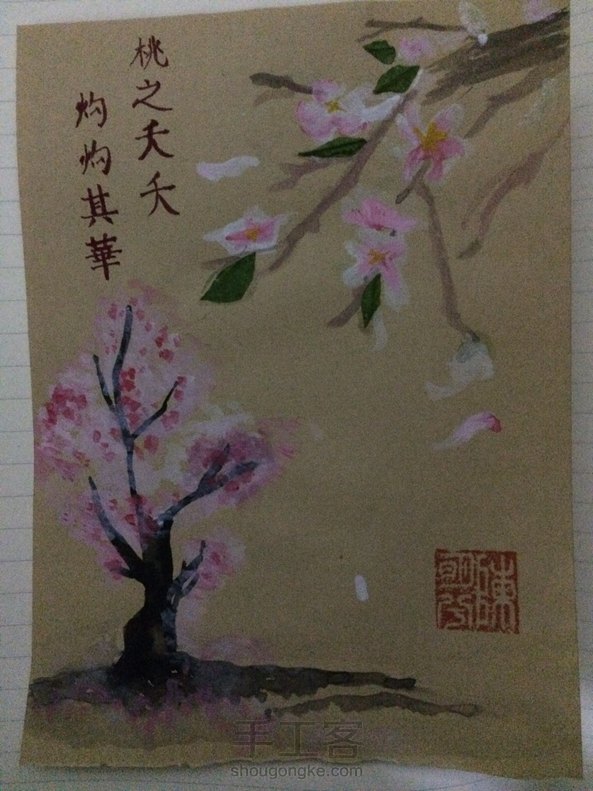 桃之夭夭
灼灼其華
手工客
shougongke.com